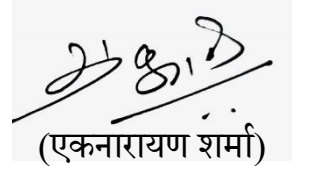 (एकनारायण शर्मा)